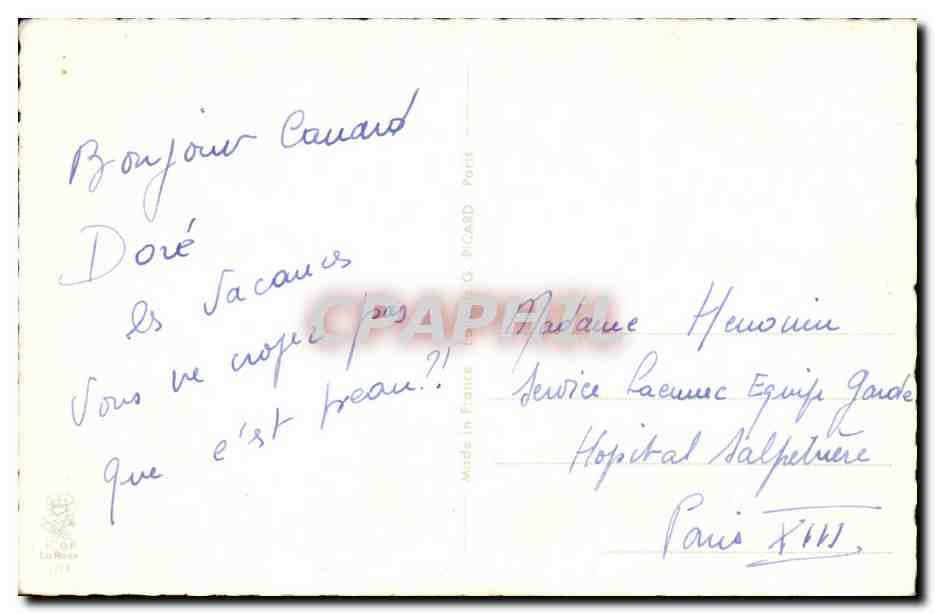 Bonjour Canard
Doré
les vacances
Vous ne croyez pas
que c'est beau ?!
Madame Henouin
Service Laennec Equipe Garde
Hopital Salpetrière
Paris XIII
Made in France
G. PICARD Paris
CPAPHIL
La Rose